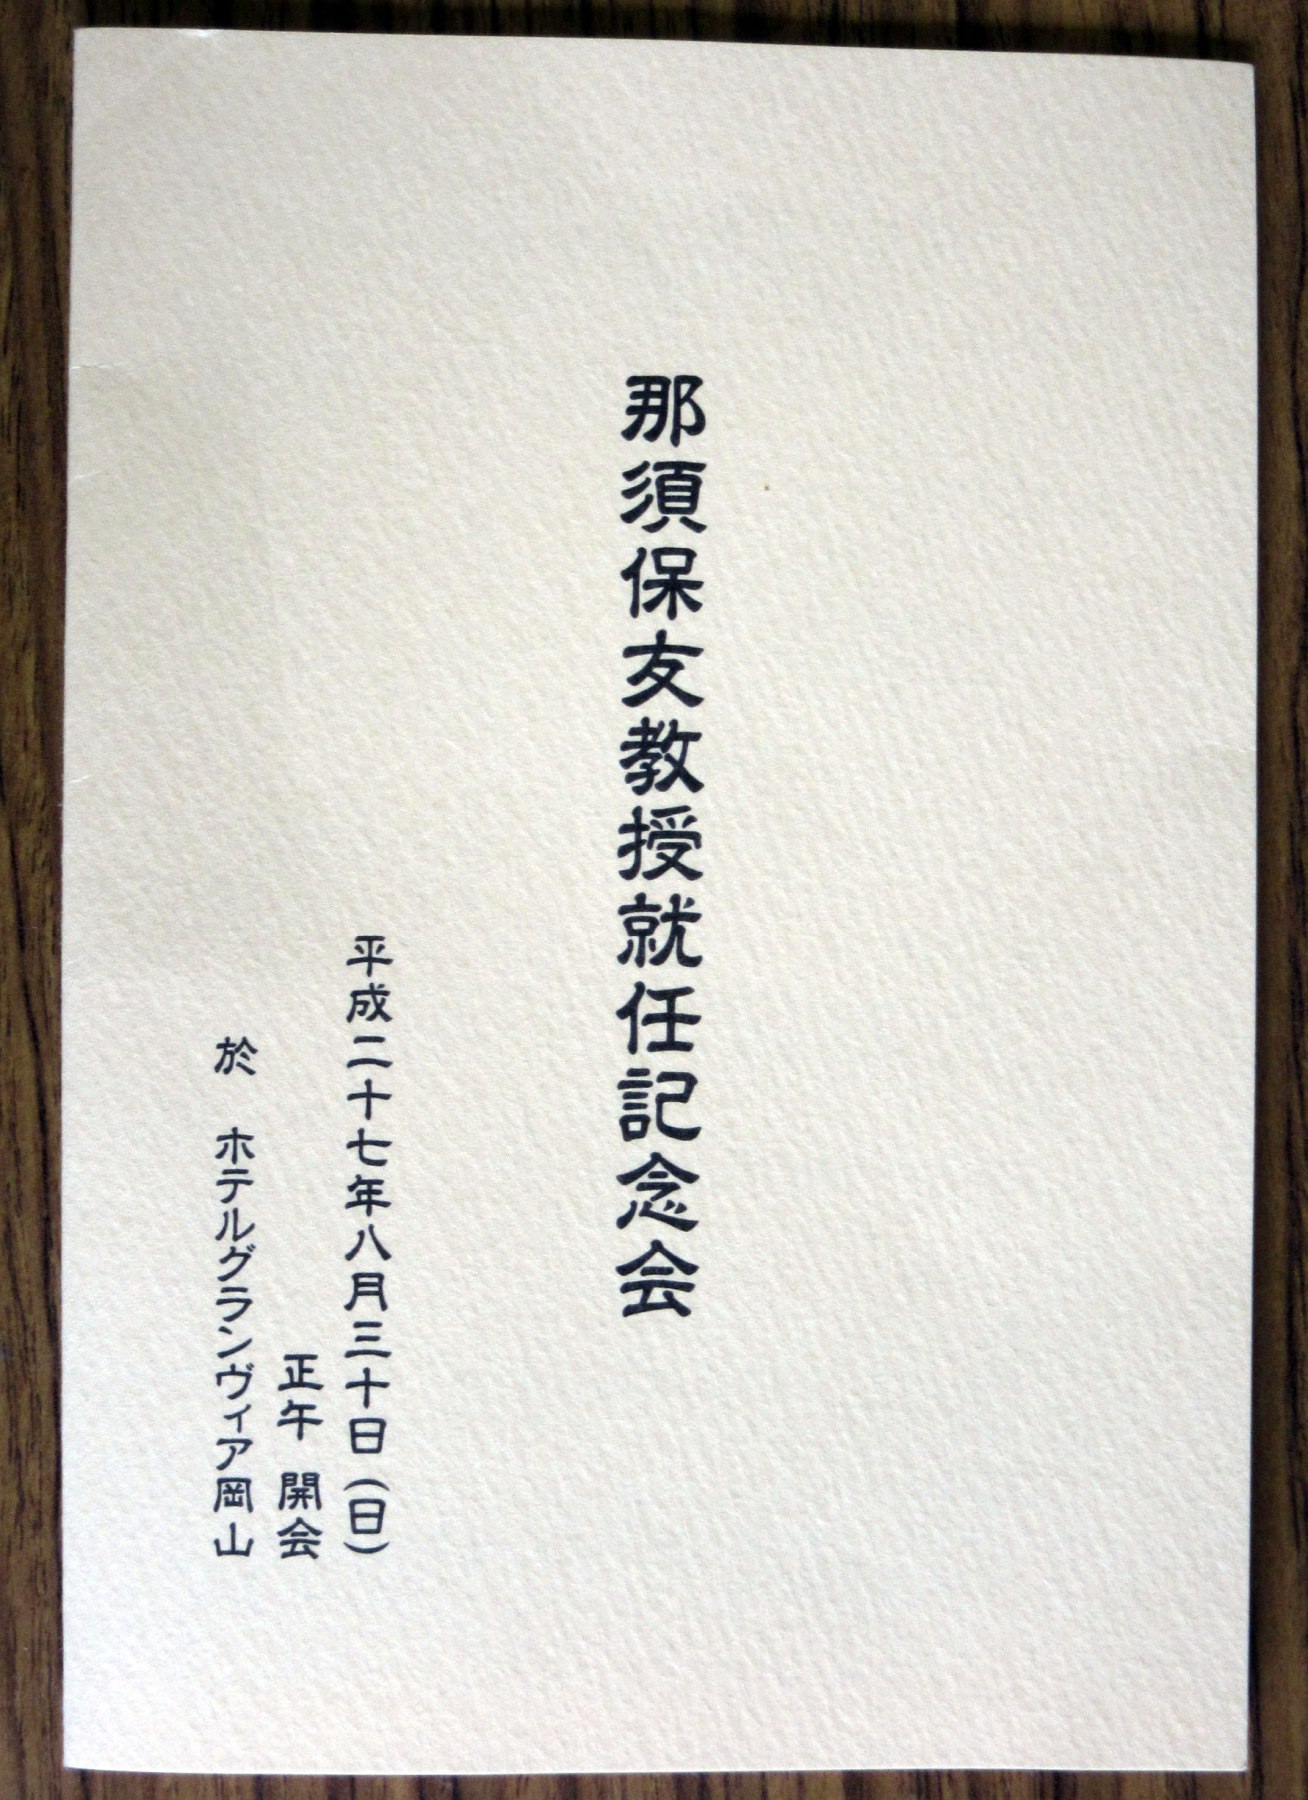 那須保友教授就任記念会
平成二十七年八月三十日（日）
正午 開会
於 ホテルグランヴィア岡山